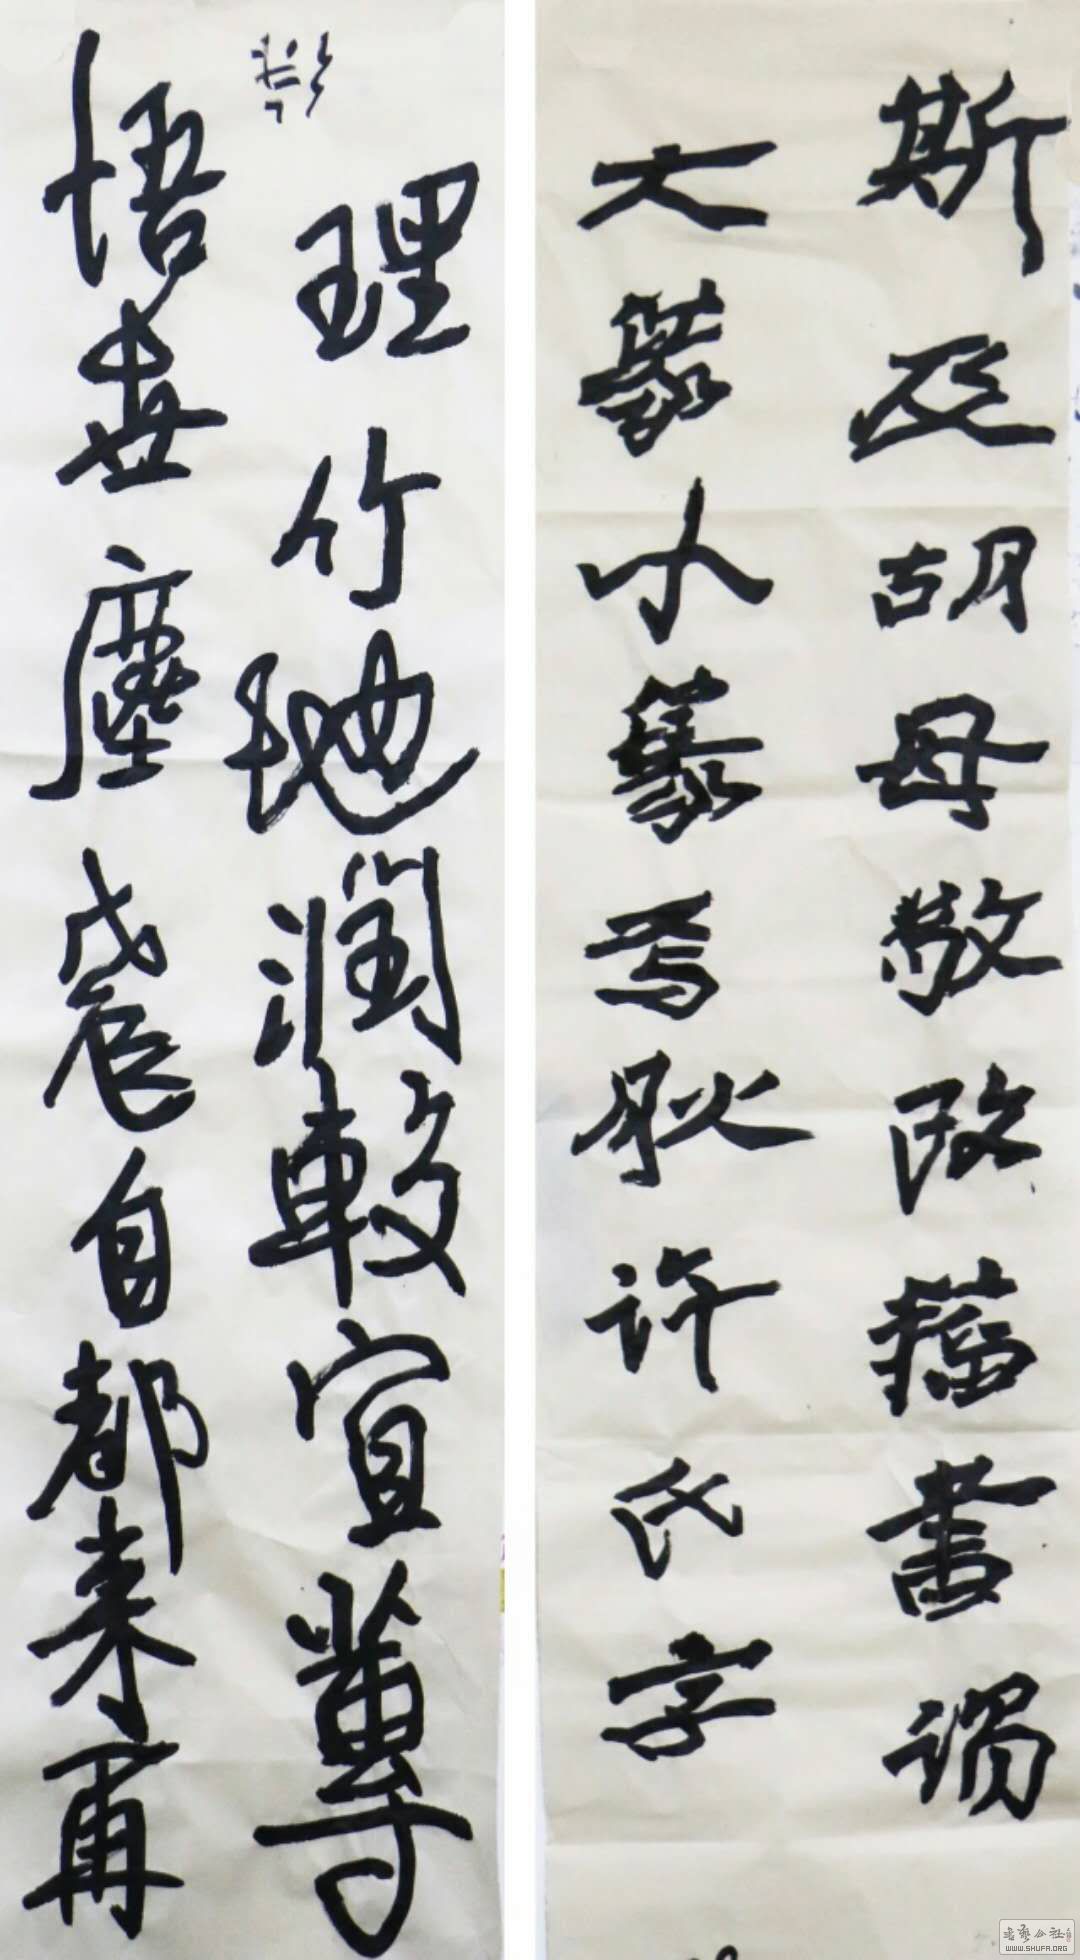 斯及胡母敬改籀書謂
大篆小篆焉耿許氏字
理竹地潤較宜
悟塵自都來再
書藝公社
WWW.SHUFA.ORG